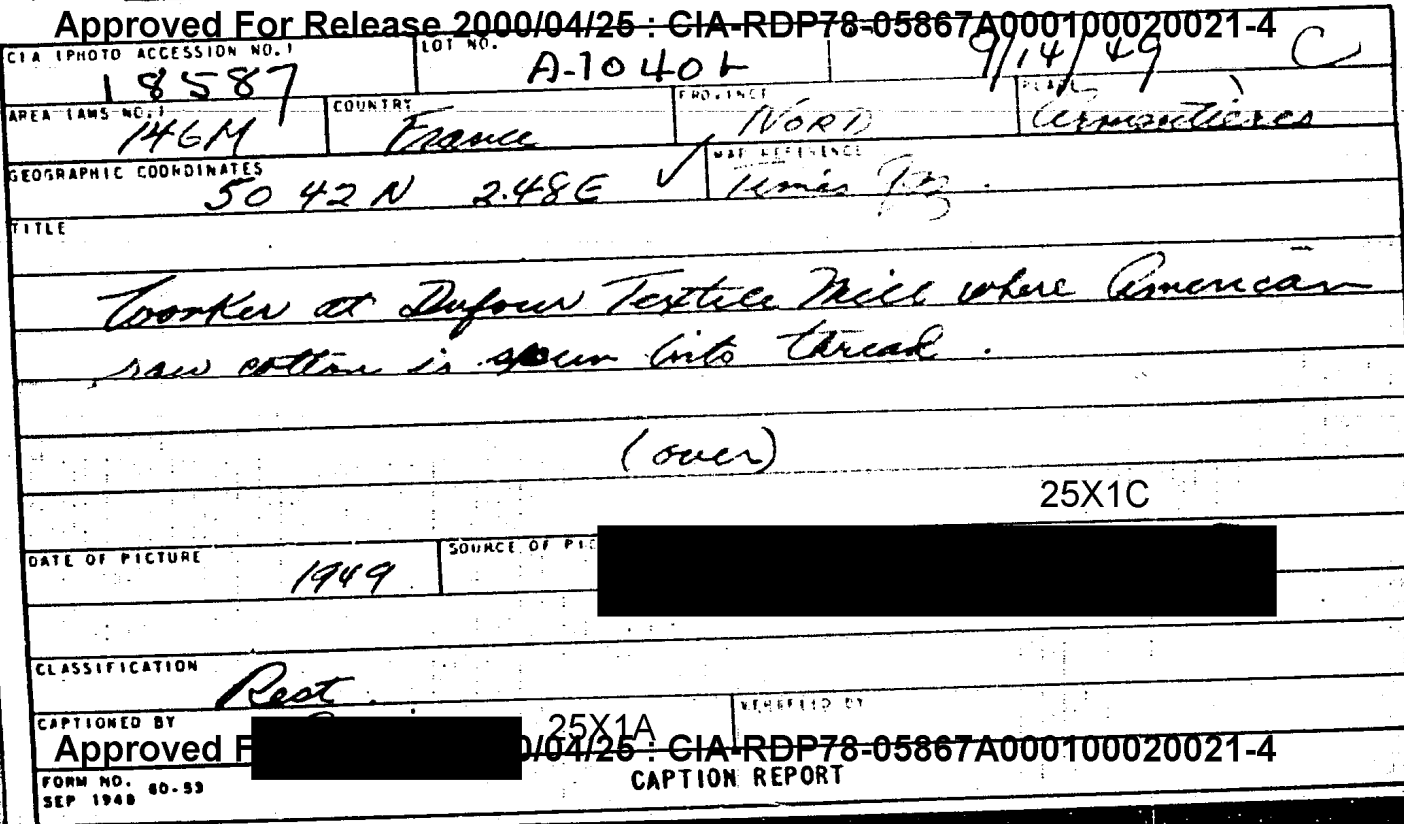 Approved For Release 2000/04/25 : CIA-RDP78-05867A000100020021-4
CIA (PHOTO ACCESSION NO.) LOT NO.
18587 A-1040L 9/14/49 C
AREA (AMS NO.) COUNTRY PROVINCE PLACE
146M France NORD Armentières
GEOGRAPHIC COORDINATES MAP REFERENCE
50 42 N 2.48E ✓ Times
TITLE
Worker at Dufour Textile Mill where American
raw cotton is spun into thread.
(over)
25X1C
DATE OF PICTURE SOURCE OF PIC
1949
CLASSIFICATION
Rest.
CAPTIONED BY 25X1A VERIFIED BY
Approved F 0/04/25 : CIA-RDP78-05867A000100020021-4
FORM NO. 60-53 CAPTION REPORT
SEP 1948